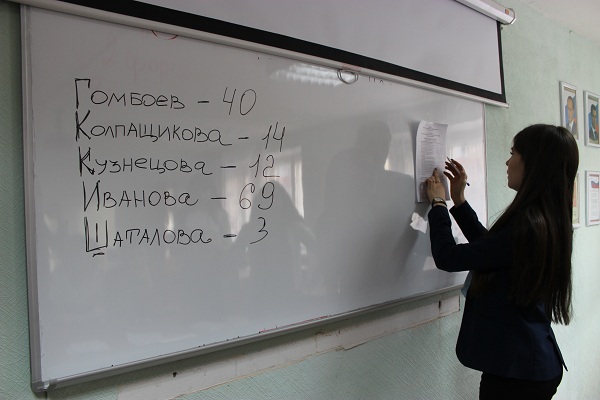 Гомбоев - 40
Колпащикова - 14
Кузнецова - 12
Иванова - 69
Шаталова - 3